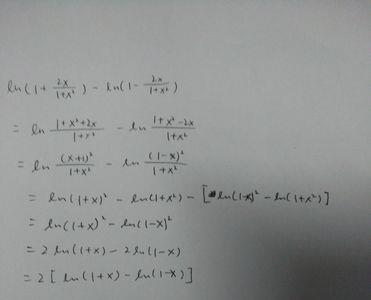 ln(1+ 2x/(1+x²)) - ln(1- 2x/(1+x²))
= ln (1+x²+2x)/(1+x²) - ln (1+x²-2x)/(1+x²)
= ln (x+1)²/(1+x²) - ln (1-x)²/(1+x²)
= ln(1+x)² - ln(1+x²) - [ln(1-x)² - ln(1+x²)]
= ln(1+x)² - ln(1-x)²
= 2 ln(1+x) - 2 ln(1-x)
= 2 [ ln(1+x) - ln(1-x) ]